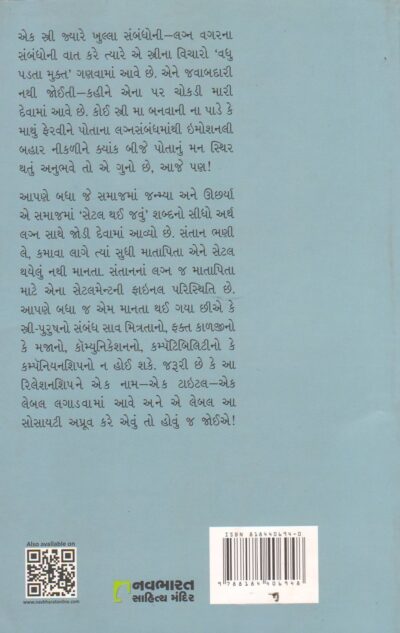 એક સ્ત્રી જ્યારે ખુલ્લા સંબંધોની–લગ્ન વગરના
સંબંધોની વાત કરે ત્યારે એ સ્ત્રીના વિચારો ‘વધુ
પડતા મુક્ત’ ગણવામાં આવે છે. એને જવાબદારી
નથી જોઈતી—કહીને એના પર ચોકડી મારી
દેવામાં આવે છે. કોઈ સ્ત્રી મા બનવાની ના પાડે કે
માથું ફેરવીને પોતાના લગ્નસંબંધમાંથી ઇમોશનલી
બહાર નીકળીને ક્યાંક બીજે પોતાનું મન સ્થિર
થતું અનુભવે તો એ ગુનો છે, આજે પણ!
આપણે બધા જે સમાજમાં જન્મ્યા અને ઊછર્યા
એ સમાજમાં ‘સેટલ થઈ જવું’ શબ્દનો સીધો અર્થ
લગ્ન સાથે જોડી દેવામાં આવ્યો છે. સંતાન ભણી
લે, કમાવા લાગે ત્યાં સુધી માતાપિતા એને સેટલ
થયેલું નથી માનતા. સંતાનનાં લગ્ન જ માતાપિતા
માટે એના સેટલમેન્ટની ફાઇનલ પરિસ્થિતિ છે.
આપણે બધા જ એમ માનતા થઈ ગયા છીએ કે
સ્ત્રી-પુરુષનો સંબંધ સાવ મિત્રતાનો, ફક્ત કાળજીનો
કે મજાનો, કૉમ્યુનિકેશનનો, કમ્પૅટિબિલિટીનો કે
કમ્પૅનિયનશિપનો ન હોઈ શકે. જરૂરી છે કે આ
રિલેશનશિપને એક નામ—એક ટાઇટલ—એક
લેબલ લગાડવામાં આવે અને એ લેબલ આ
સોસાયટી અપ્રૂવ કરે એવું તો હોવું જ જોઈએ!
Also available on
www.navbharatonline.com
નવભારત
સાહિત્ય મંદિર
ISBN 8184406940
9 788184 406948